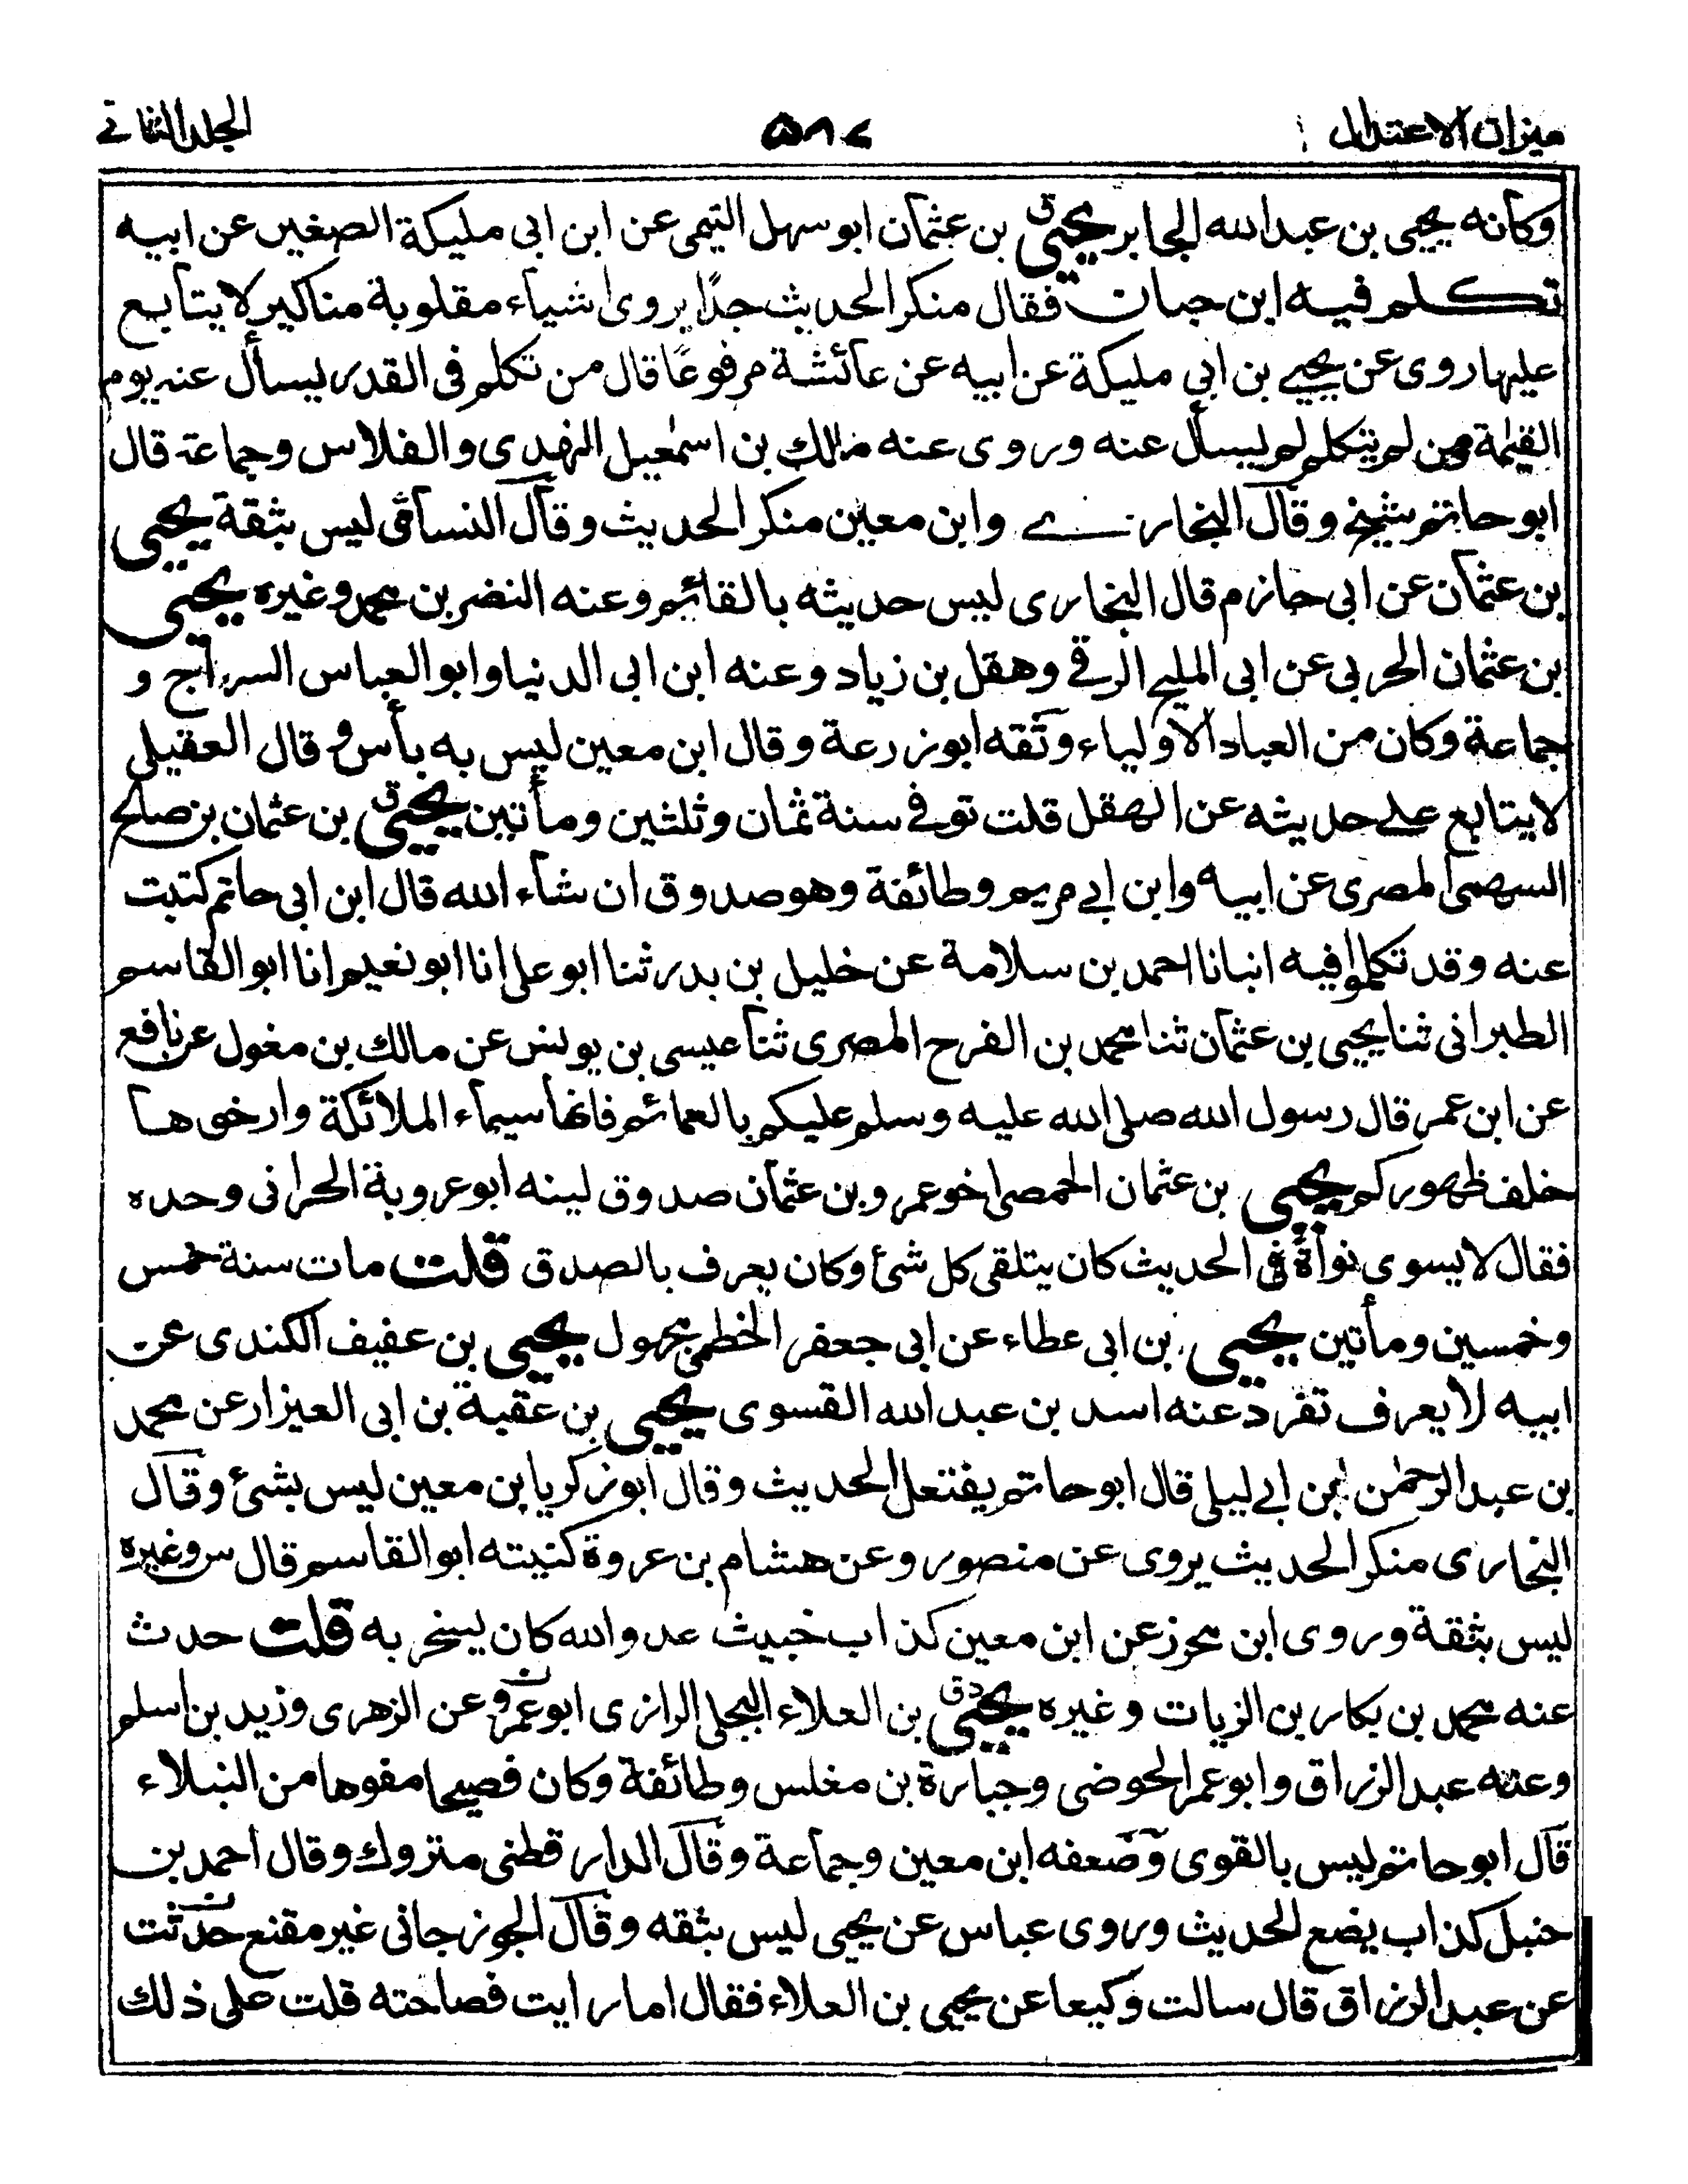 ميزان الاعتدال
٥٨٧
الجلد الثاني
وكأنه يحيى بن عبدالله الجابر يحيى ق بن عثمان ابو سهل التيمى عن ابن ابى مليكة الصغير عن ابيه
تكلم فيه ابن حبان فقال منكر الحديث جدًا يروى اشياء مقلوبة مناكير لا يتابع
عليها روى عن يحيى بن ابى مليكة عن ابيه عن عائشة مرفوعًا قال من تكلم فى القدر يسأل عنه يوم
القيٰمة ومن لم يتكلم لم يسأل عنه وروى عنه مالك بن اسمٰعيل النهدى والفلاس وجماعة قال
ابو حاتم شيخ وقال البخارى وابن معين منكر الحديث وقال النسائى ليس بثقة يحيى
بن عثمان عن ابى حازم قال البخارى ليس حديثه بالقائم وعنه النضر بن محمد وغيره يحيى
بن عثمان الحربى عن ابى المليح الرقى وهقل بن زياد وعنه ابن ابى الدنيا وابو العباس السراج و
جماعة وكان من العباد الاولياء وثقه ابو زرعة وقال ابن معين ليس به بأس و قال العقيلى
لا يتابع على حديثه عن الهقل قلت توفى سنة ثمان وثلثين ومأتين يحيى ق بن عثمان بن صالح
السهمى المصرى عن ابيه وابن ابى مريم وطائفة وهو صدوق ان شاء الله قال ابن ابى حاتم كتبت
عنه وقد تكلموا فيه انبانا احمد بن سلامة عن خليل بن بدر ثنا ابو على انا ابو نعيم انا ابو القاسم
الطبرانى ثنا يحيى بن عثمان ثنا محمد بن الفرح المصرى ثنا عيسى بن يونس عن مالك بن مغول عن نافع
عن ابن عمر قال رسول الله صلى الله عليه وسلم عليكم بالعمائم فانها سيماء الملائكة وارخوها
خلف ظهوركم يحيى بن عثمان الحمصى اخو عمرو بن عثمان صدوق لينه ابو عروبة الحرانى وحده
فقال لا يسوى نواة فى الحديث كان يتلقى كل شئ وكان يعرف بالصدق قلت مات سنة خمس
وخمسين ومأتين يحيى بن ابى عطاء عن ابى جعفر الخطمى مجهول يحيى بن عفيف الكندى عن
ابيه لا يعرف تفرد عنه اسد بن عبد الله القسوى يحيى بن عقبة بن ابى العيزار عن محمد
بن عبد الرحمٰن بن ابى ليلى قال ابو حاتم يفتعل الحديث وقال ابو زكريا بن معين ليس بشئ وقال
البخارى منكر الحديث يروى عن منصور وعن هشام بن عروة كنيته ابو القاسم قال س وغيره
ليس بثقة وروى ابن محرز عن ابن معين كذاب خبيث عدو الله كان يسخر به قلت حدث
عنه محمد بن بكار بن الزيات وغيره يحيى دق بن العلاء البجلى الرازى ابو عمرو عن الزهرى وزيد بن اسلم
وعنه عبد الرزاق وابو عمر الحوضى وجبارة بن مغلس وطائفة وكان فصيحا مفوها من النبلاء
قال ابو حاتم ليس بالقوى وضعفه ابن معين وجماعة وقال الدار قطنى متروك وقال احمد بن
حنبل كذاب يضع الحديث وروى عباس عن يحيى ليس بثقه وقال الجوزجانى غير مقنع حدثت
عن عبد الرزاق قال سالت وكيعا عن يحيى بن العلاء فقال اما رايت فصاحته قلت على ذلك